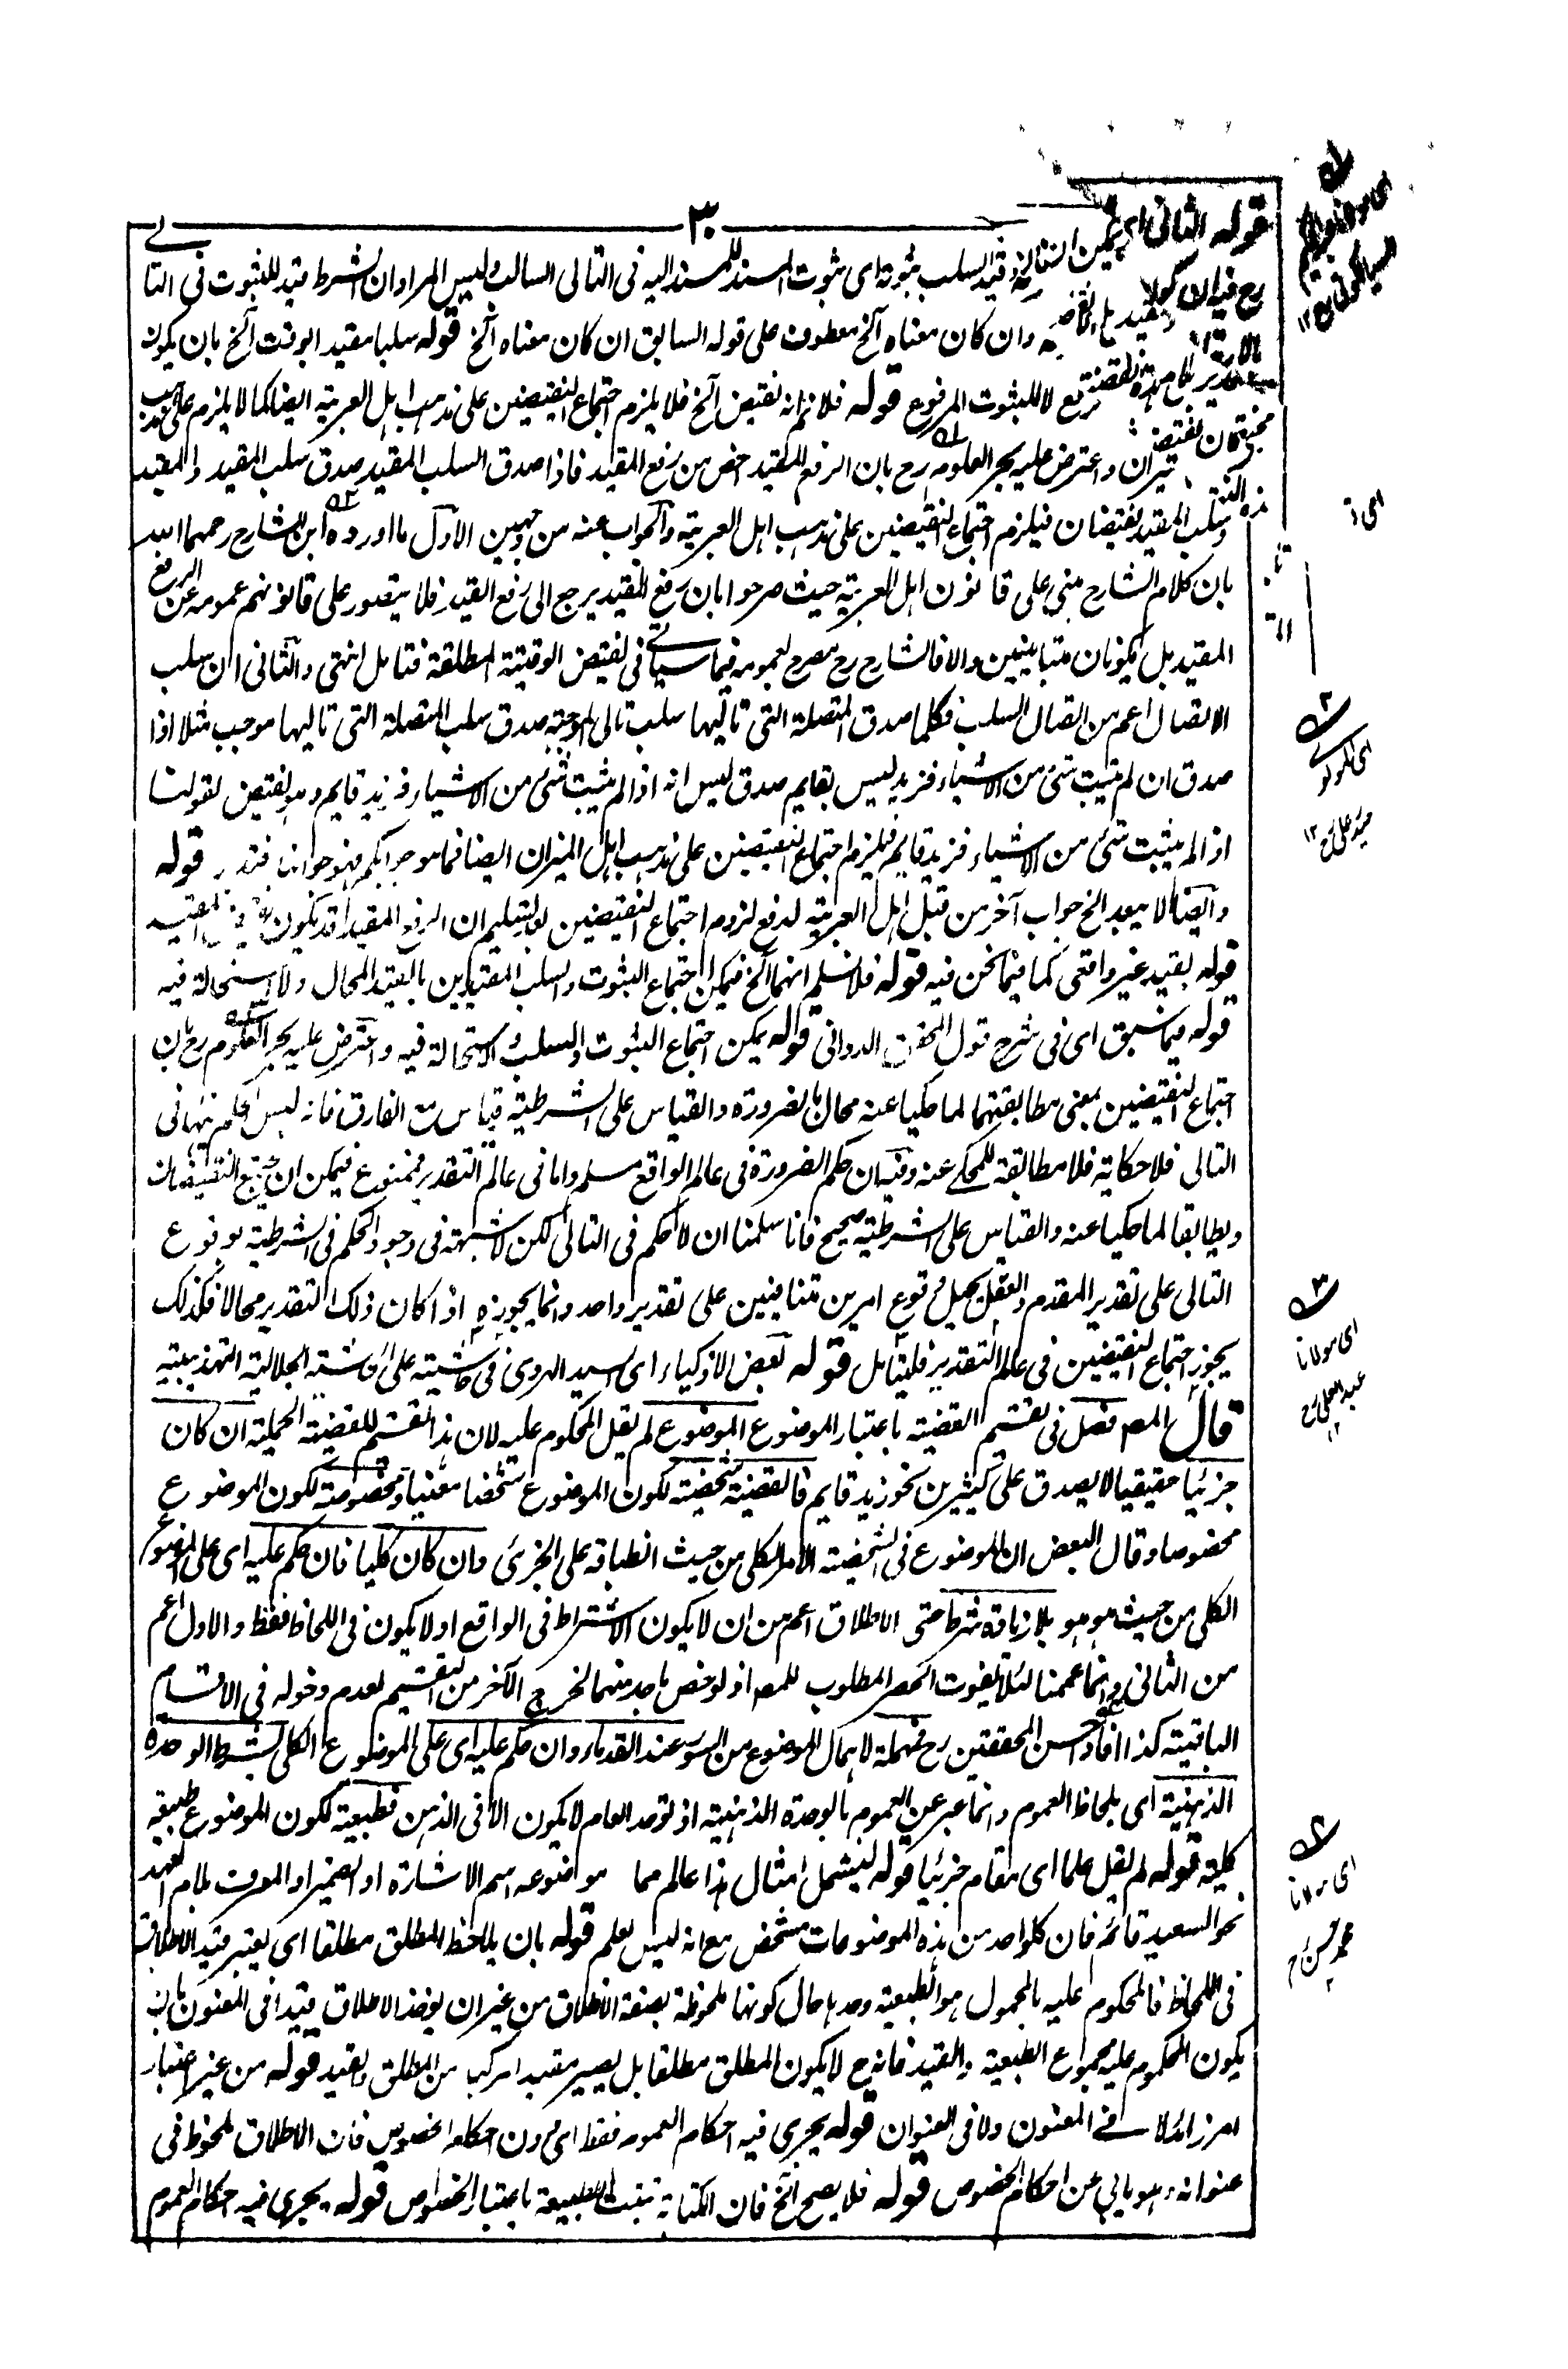 ٣٠
قوله الثانی ای
قید السلب بثبوته ای ثبوت المسند للمسند الیه فی التالی السالب ولیس المراد ان الشرط قید للثبوت فی التا
لی
وان کان معناه آلخ معطوف علی قوله السابق ان کان معناه آلخ قوله سلبا مقید ابوقت آلخ بان یکون
لا للثبوت المرفوع قوله فلانم انه نقیض آلخ فلا یلزم اجتماع النقیضین علی مذهب اہل العربیة ایضا کما لا یلزم علی مذهب
واعترض علیه بحر العلوم رح بان الرفع المقید اخص من رفع المقید فاذا صدق السلب المقید صدق سلب المقید والمقید
وسلب المقید نقیضان فیلزم اجتماع النقیضین علی مذهب اہل العربیة والجواب عنه من وجهین الاول ما اورده ابن الشارح رحمهما الله
بان کلام الشارح مبنی علی قانون اہل العربیة حیث صرحوا بان رفع المقید یرجع الی رفع القید فلا یتصور علی قانونهم عمومه عن الرفع
المقید بل یکونان متباینین والا فالشارح رح مصرح بعمومه فیما سیاتی فی نقیض الوقتیة المطلقة فتامل انتهی والثانی ان سلب
الاتصال اعم من اتصال السلب فکلما صدق المتصلة التی تالیها سلب تالی الموجبة صدق سلب المتصلة التی تالیها موجب مثلا اذا
صدق ان لم یثبت شئ من الاشیاء فزید لیس بقایم صدق لیس انه اذا لم یثبت شئ من الاشیاء فزید قایم وهو نقیض لقولنا
اذا لم یثبت شئ من الاشیاء فزید قایم فیلزم اجتماع النقیضین علی مذهب اہل المیزان ایضا فما هو جوابکم فهو جوابنا فتدبر قوله
وایضا لا یبعد الخ جواب آخر من قبل اہل العربیة لدفع لزوم اجتماع النقیضین بعد تسلیم ان الرفع المقید قد یکون
قوله بقید غیر واقعی کما فیما نحن فیه قوله فلا نسلم انهما آلخ فیمکن اجتماع الثبوت والسلب المقیدین بالقید المحال ولا استحالة فیه
قوله فیما سبق ای فی شرح قول المحقق الدوانی قوله یمکن اجتماع الثبوت والسلب ولا استحالة فیه واعترض علیه بحر العلوم رح بان
اجتماع النقیضین بمعنی مطابقتهما لما حکیا عنه محال بالضرورة والقیاس علی الشرطیة قیاس مع الفارق فانه لیس الحکم فیها فی
التالی فلا حکایة فلا مطابقة للمحکی عنه وفیه ان حکم الضرورة فی عالم الواقع مسلم واما فی عالم التقدیر فممنوع فیمکن ان یجتمع النقیضان
ویطابقا لما حکیا عنه والقیاس علی الشرطیة صحیح فانا سلمنا ان لا حکم فی التالی لکن لا شبهة فی وجود الحکم فی الشرطیة بوقوع
التالی علی تقدیر المقدم والعقل یحیل وقوع امرین متنافیین علی تقدیر واحد وانما یجوزه اذا کان ذلک التقدیر محالا فکذلک
یجوز اجتماع النقیضین فی عالم التقدیر فلیتأمل قوله بعض الاذکیاء ای السید الهروی فی حاشیته علی الحاشیة الجلالیة التهذیبیة
قال المص فصل فی تقسیم القضیة باعتبار الموضوع الموضوع لم یقل المحکوم علیه لان هذا التقسیم للقضیة الحملیة ان کان
جزئیا حقیقیا لا یصدق علی کثیرین نحو زید قایم فالقضیة شخصیة لکون الموضوع شخصا معینا ومخصوصة لکون الموضوع
مخصوصا وقال البعض ان الموضوع فی الشخصیة الامر الکلی من حیث انطباقه علی الجزئی وان کان کلیا فان حکم علیه ای علی الموضوع
الکلی من حیث هو هو بلا زیادة شرط حتی الاطلاق اعم من ان لا یکون الاشتراط فی الواقع او لا یکون فی اللحاظ فقط والاول اعم
من الثانی وانما عممنا لئلا یفوت الحصر المطلوب للمص اذ لو خص باحد منهما لخرج الآخر من التقسیم لعدم دخوله فی الاقسام
الباقیة کذا افاد احسن المحققین رح فمهملة لاهمال الموضوع من السور عند القدماء وان حکم علیه ای علی الموضوع الکلی بشرط الوحدة
الذهنیة ای بلحاظ العموم وانما عبر عن العموم بالوحدة الذهنیة اذ توحد العام لا یکون الا فی الذهن فطبعیة لکون الموضوع طبیعة
کلیة قوله لم یقل علما ای مقام جزئیا قوله لیشمل امثال هذا عالم مما موضوعه اسم الاشارة او الضمیر او المعرف بلام العهد
نحو السعید قائم فان کلواحد من هذه الموضوعات مشخص مع انه لیس بعلم قوله بان یلاحظ المطلق مطلقا ای یعتبر قید الاطلاق
فی اللحاظ فالمحکوم علیه بالمحمول هو الطبیعة وحدها حال کونها ملحوظة بصفة الاطلاق من غیر ان یؤخذ الاطلاق قیدا فی المعنون بان
یکون المحکوم علیه مجموع الطبیعة والقید فانه ح لا یکون المطلق مطلقا بل یصیر مقیدا مرکب من المطلق والقید قوله من غیر اعتبار
امر زائد لا فی المعنون ولا فی العنوان قوله یجری فیه احکام العموم فقط ای دون احکام الخصوص فان الاطلاق ملحوظ فی
عنوانه وهو یابی عن احکام الخصوص قوله فلا یصح آلخ فان الکتابة تثبت للطبیعة باعتبار الخصوص قوله یجری فیه احکام العموم
ای مولانا
عبد العلی رح
١٢
ای مولانا
محمد حسن رح